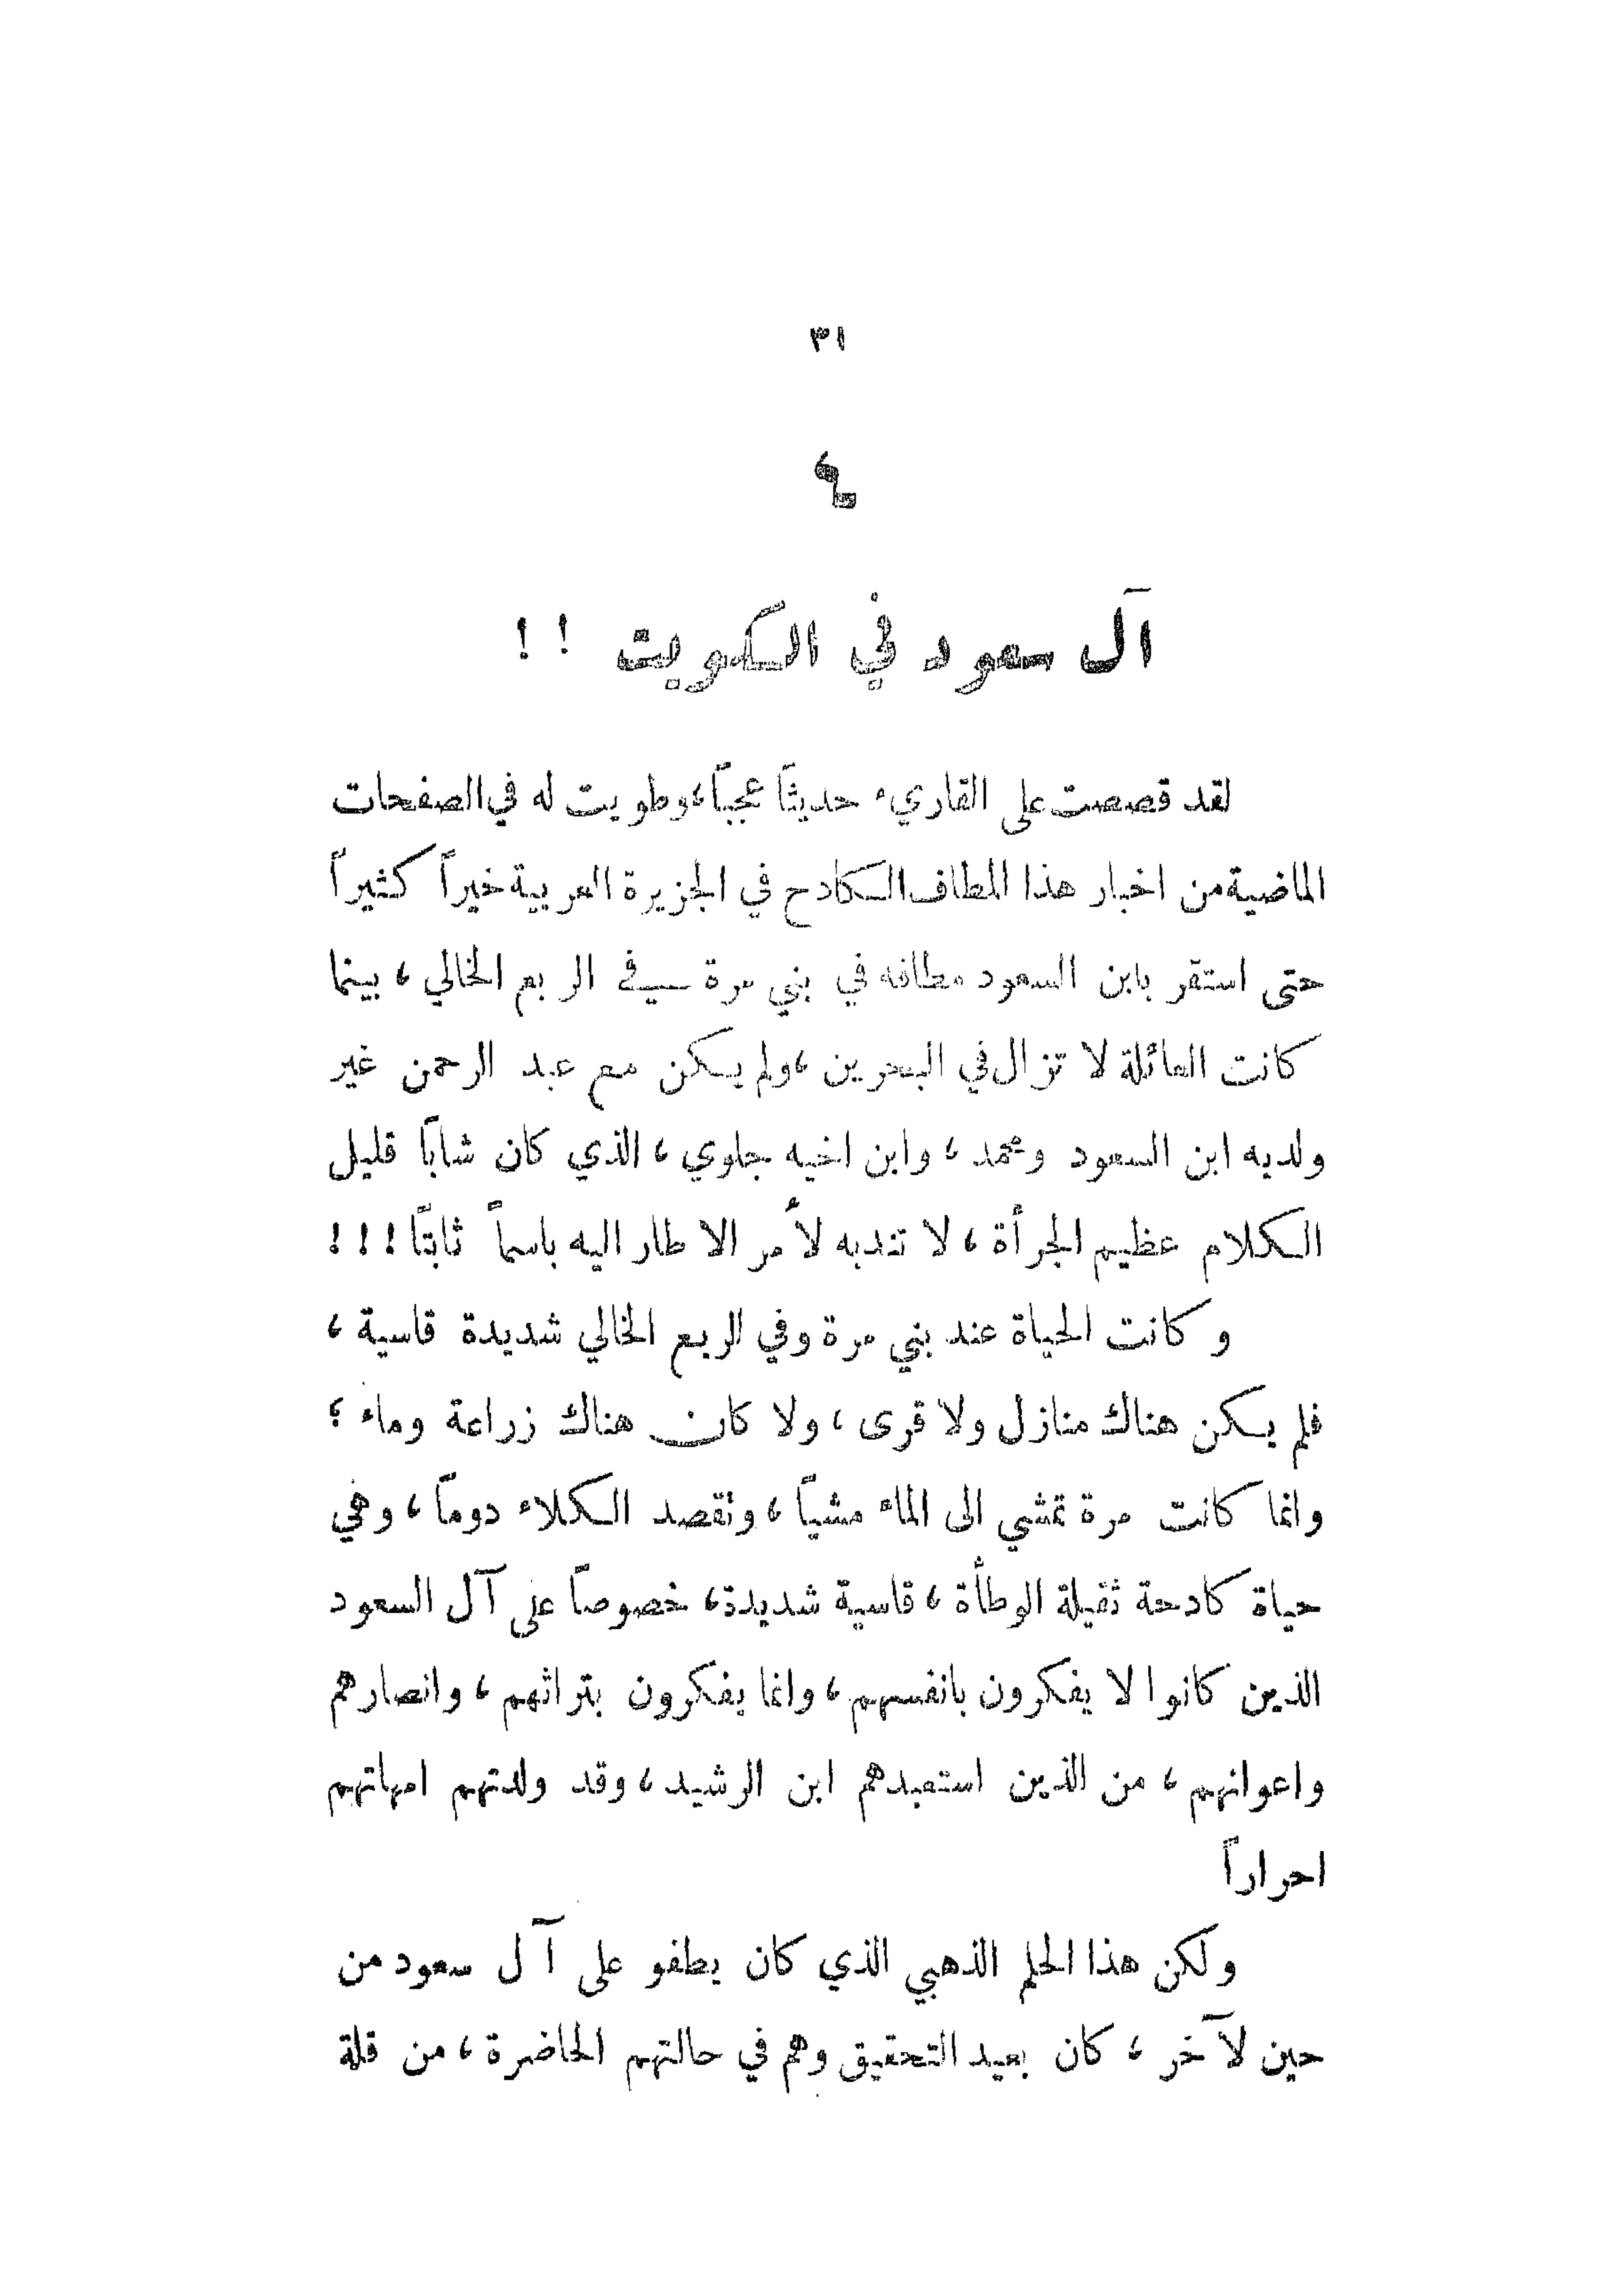 ٣١
آل سعود في الكويت ! !
لقد قصصت على القاريء حديثاً عجباً، وطويت له في الصفحات
الماضية من اخبار هذا المطاف الكادح في الجزيرة العربية خيراً كثيراً
حتى استقر بابن السعود مطافه في بني مرة في الربع الخالي، بينما
كانت العائلة لا تزال في البحرين، ولم يكن مع عبد الرحمن غير
ولديه ابن السعود ومحمد، وابن اخيه جلوي، الذي كان شاباً قليل
الكلام عظيم الجرأة، لا تندبه لأمر الا طار اليه باسماً ثابتاً ! ! !
وكانت الحياة عند بني مرة وفي الربع الخالي شديدة قاسية،
فلم يكن هناك منازل ولا قرى، ولا كان هناك زراعة وماء ؛
وانما كانت مرة تمشي الى الماء مشياً، وتقصد الكلاء دوماً، وهي
حياة كادحة ثقيلة الوطأة، قاسية شديدة، خصوصاً على آل السعود
الذين كانوا لا يفكرون بانفسهم، وانما يفكرون بتراثهم، وانصارهم
واعوانهم، من الذين استعبدهم ابن الرشيد، وقد ولدتهم امهاتهم
احراراً
ولكن هذا الحلم الذهبي الذي كان يطفو على آل سعود من
حين لآخر، كان بعيد التحقيق وهم في حالتهم الحاضرة، من قلة